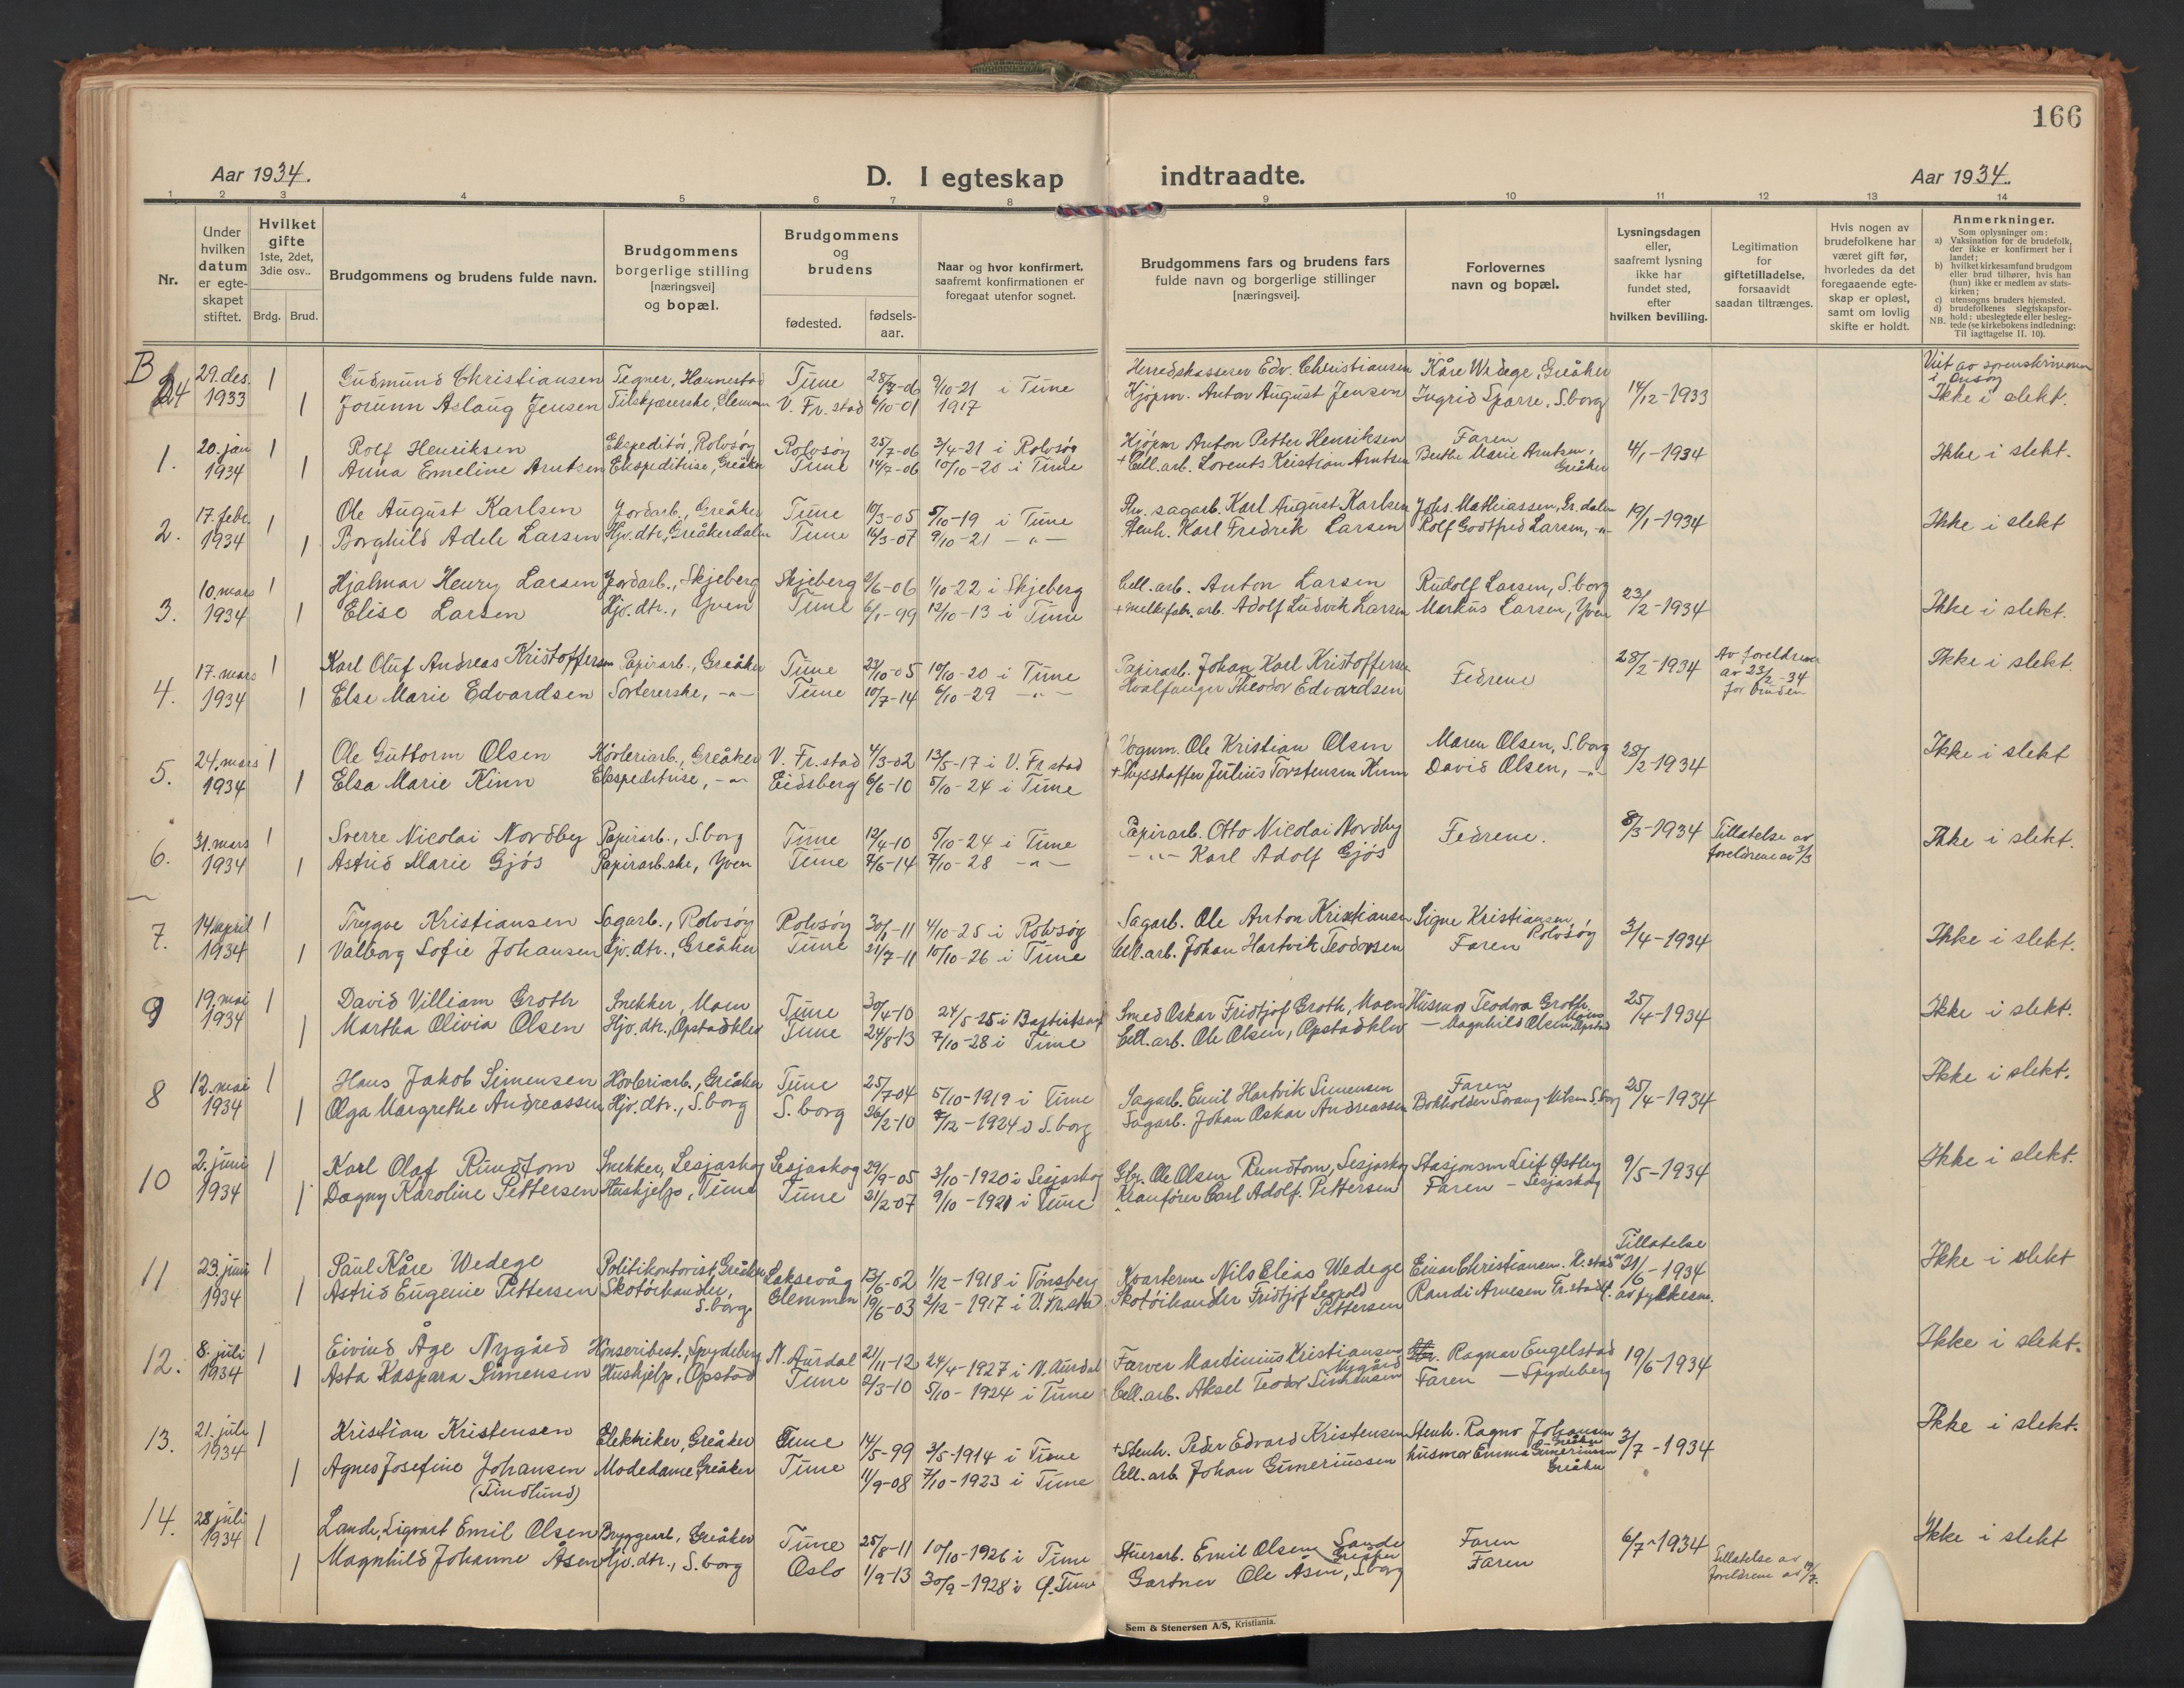 166
Aar 1934. D. I egteskap indtraadte. Aar 1934.
1 2 3 4 5 6 7 8 9 10 11 12 13 14
Nr.
Under hvilken datum er egte-skapet stiftet.
Hvilket gifte 1ste, 2det, 3die osv..
Brdg. Brud.
Brudgommens og brudens fulde navn.
Brudgommens borgerlige stilling [næringsvei] og bopæl.
Brudgommens og brudens
fødested. fødsels-aar.
Naar og hvor konfirmert, saafremt konfirmationen er foregaat utenfor sognet.
Brudgommens fars og brudens fars fulde navn og borgerlige stillinger [næringsvei].
Forlovernes navn og bopæl.
Lysningsdagen eller, saafremt lysning ikke har fundet sted, efter hvilken bevilling.
Legitimation for giftetilladelse, forsaavidt saadan tiltrænges.
Hvis nogen av brudefolkene har været gift før, hvorledes da det foregaaende egte-skap er opløst, samt om lovlig skifte er holdt.
Anmerkninger.
Som oplysninger om:
a) Vaksination for de brudefolk, der ikke er konfirmert her i landet;
b) hvilket kirkesamfund brudgom eller brud tilhører, hvis han (hun) ikke er medlem av stats-kirken;
c) utensogns bruders hjemsted.
d) brudefolkenes slegtskapsfor-hold: ubeslegtede eller besleg-tede (se kirkebokens indledning: Til iagttagelse II. 10).
NB.
B
24 29. des. 1 Gudmund Christiansen Tegner, Hannestad Tune 28/7-06 9/10-21 i Tune Herredskasserer Edv. Christiansen Kåre Wedege, Greåker 14/12-1933
1933 1 Jorunn Aslaug Jensen Tilskjærerske, Glemmen V. Fr.stad 6/10-01 1917 Kjøpm. Anton August Jensen Ingrid Sparre, S.borg Ikke i slekt.
1. 20. jan 1 Rolf Henriksen Ekspeditør, Rolvsøy Rolvsøy 25/7-06 3/4-21 i Rolvsøy Kjøpm Anton Petter Henriksen Faren 4/1-1934 Ikke i slekt.
1934 1 Anna Emeline Arntsen Ekspeditrise, Greåker Tune 14/7-06 10/10-20 i Tune + Cell.arb. Lorents Kristian Arntsen Berthe Marie Arntsen, Greåker
2. 17. febr. 1 Ole August Karlsen Jordarb., Greåker Tune 10/3-05 5/10-19 i Tune sagarb. Karl August Karlsen Johs. Mathiassen, Gr.dalen 19/1-1934 Ikke i slekt
1934 1 Borghild Adele Larsen Hjv.dtr., Greåkerdalen Tune 16/3-07 9/10-21 -"- Stenh. Karl Fredrik Larsen Rolf Godtfred Larsen, -"-
3. 10. mars 1 Hjalmar Henry Larsen Jordarb., Skjeberg Skjeberg 2/6-06 1/10-22 i Skjeberg Cell.arb. Anton Larsen Rudolf Larsen, S.borg 23/2-1934 Ikke i slekt.
1934 1 Elise Larsen Hjv.dtr., Yven Tune 6/1-99 12/10-13 i Tune + melkefabr.arb. Adolf Ludvik Larsen Markus Larsen, Yven
4. 17. mars 1 Karl Oluf Andreas Kristoffersen Papirarb., Greåker Tune 23/10-05 10/10-20 i Tune Papirarb. Johan Karl Kristoffersen Fedrene 28/2-1934 Av foreldrene av 23/2-34 for bruden Ikke i slekt.
1934 1 Else Marie Edvardsen Sortererske, -"- Tune 10/7-14 6/10-29 -"- Hvalfanger Theodor Edvardsen
5. 24. mars 1 Ole Guttorm Olsen Høvleriarb., Greåker V. Fr.stad 4/3-02 13/5-17 i V. Fr.stad Vognm. Ole Kristian Olsen Maren Olsen, S.borg 28/2-1934 Ikke i slekt
1934 1 Elsa Marie Kinn Ekspeditrise, -"- Eidsberg 6/6-10 5/10-24 i Tune + Julius Torstensen Kinn David Olsen, -"-
6. 31. mars 1 Sverre Nicolai Nordby Papirarb., S.borg Tune 12/4-10 5/10-24 i Tune Papirarb. Otto Nicolai Nordby Fedrene. 8/3-1934 Tillatelse av foreldrene av 3/3 Ikke i slekt.
1934 1 Astrid Marie Gjøs Papirarb.ske, Yven Tune 7/6-14 7/10-28 -"- -"- Karl Adolf Gjøs
7. 14. april 1 Trygve Kristiansen Sagarb., Rolvsøy Rolvsøy 30/6-11 4/10-25 i Rolvsøy Sagarb. Ole Anton Kristiansen Signe Kristiansen, Rolvsøy 3/4-1934 Ikke i slekt.
1934 1 Valborg Sofie Johansen Hjv.dtr., Greåker Tune 21/7-11 10/10-26 i Tune Cell.arb. Johan Hartvik Teodorsen Faren
9 19. mai 1 David Villiam Groth Snekker, Moen Tune 30/4-10 24/5-25 i Baptistsamf Smed Oskar Fridtjof Groth, Moen Husmor Teodora Groth, Moen 25/4-1934 Ikke i slekt.
1934 1 Martha Olivia Olsen Hjv.dtr., Opstadklev Tune 24/8-13 7/10-28 i Tune Cell.arb. Ole Olsen, Opstadklev — Magnhild Olsen, Opstad
8 12. mai 1 Hans Jakob Simensen Høvleriarb., Greåker Tune 25/7-04 5/10-1919 i Tune Sagarb. Emil Hartvik Simensen Faren 25/4-1934 Ikke i slekt.
1934 1 Olga Margrethe Andreassen Hjv.dtr., S.borg S.borg 26/2-10 7/12-1924 i S.borg Sagarb. Johan Oskar Andreassen Bokholder S.borg
10 2. juni 1 Karl Olaf Rundtom Snekker, Lesjaskog Lesjaskog 29/9-05 3/10-1920 i Lesjaskog Gbr. Ole Olsen Rundtom, Lesjaskog Stasjonsm Leif Østby 9/5-1934 Ikke i slekt.
1934 1 Dagny Karoline Pettersen Huskjelp, Tune Tune 21/2-07 9/10-1921 i Tune Kranfører Carl Adolf Pettersen Faren - Lesjaskog
11 23. juni 1 Paul Kåre Wedege Politikontorist, Greåker Laksevåg 13/6-02 1/2-1918 i Tønsberg Kvarterm. Nils Elias Wedege Einar Christiansen. H.stad Tillatelse av 21/6-1934 Ikke i slekt
1934 1 Astrid Eugenie Pettersen Skotøihandler, S.borg Glemmen 19/6-03 2/12-1917 i V. Fr.stad Skotøihandler Fridtjof Leopold Pettersen Randi Arnesen Fr.stad av fylkesm.
12. 8. juli 1 Eivind Åge Nygård Hønseribest., Spydeberg N. Aurdal 21/11-12 24/4-1927 i N. Aurdal Farver Martinius Kristiansen Nygård Ragnar Engelstad 19/6-1934 Ikke i slekt.
1934 1 Asta Kaspara Simensen Huskjelp, Opstad Tune 2/3-10 5/10-1924 i Tune Cell.arb. Aksel Teodor Simensen Faren — Spydeberg
13. 21. juli 1 Kristian Kristensen Elektriker, Greåker Tune 14/5-99 3/5-1914 i Tune + Stenh. Peder Edvard Kristensen Stenh. Ragnv Johansen Greåker 3/7-1934 Ikke i slekt.
1934 1 Agnes Josefine Johansen Modedame, Greåker Tune 11/9-08 7/10-1923 i Tune Cell.arb. Johan Gunerius­sen husmor Emma Gunerius­sen Greåker
(Tindlund)
14. 28 juli 1 Lande, Sigvart Emil Olsen Bryggearb., Greåker Tune 25/8-11 10/10-1926 i Tune Stuerarb. Emil Olsen Lande Greåker Faren 6/7-1934 Ikke i slekt
1934 1 Magnhild Johanne Åsen Hjv.dtr., S.borg Oslo 1/9-13 30/9-1928 i Tune Gartner Ole Åsen, S.borg Faren Tillatelse av foreldrene av
Sem & Stenersen A/S, Kristiania.